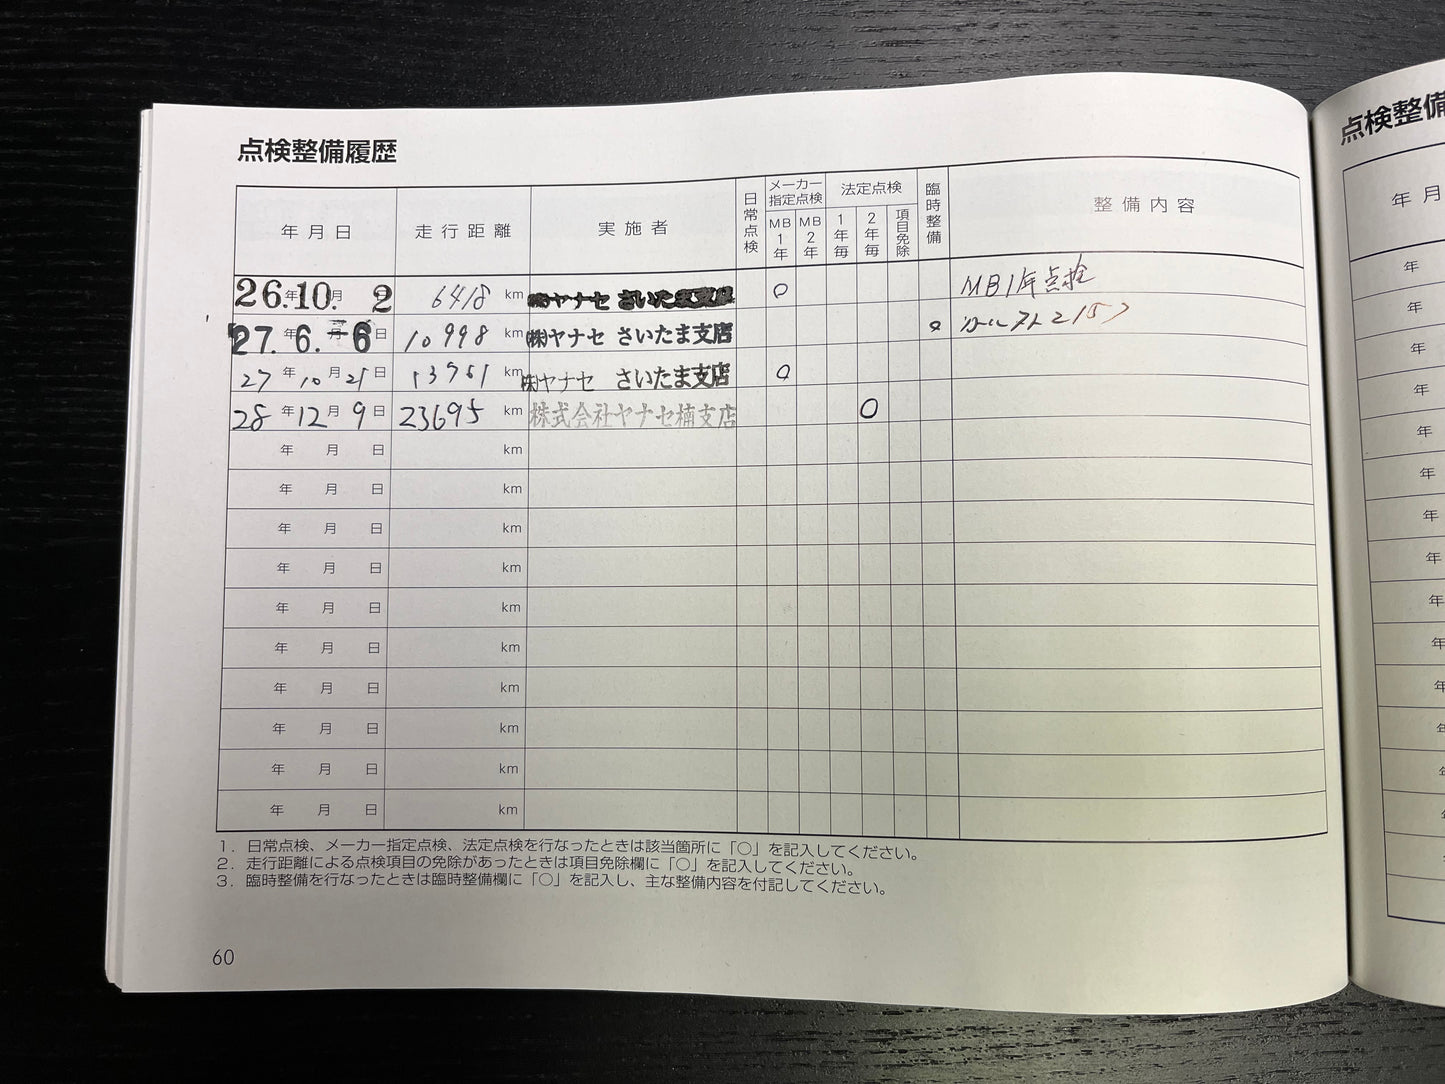 点検整備履歴
年月日 走行距離 実施者 日常点検 メーカー指定点検 MB1年 MB2年 法定点検 1年毎 2年毎 項目免除 臨時整備 整備内容
26.年10.月 2日 6418 km ㈱ヤナセ さいたま支店 ○ MB1年点検
27.年6.月-6日 10998 km ㈱ヤナセ さいたま支店 ○
27年10月21日 13761 km ㈱ヤナセ さいたま支店 ○
28年12月9日 23695 km 株式会社ヤナセ楠支店 ○
年 月 日 km
年 月 日 km
年 月 日 km
年 月 日 km
年 月 日 km
年 月 日 km
年 月 日 km
年 月 日 km
年 月 日 km
年 月 日 km
1. 日常点検、メーカー指定点検、法定点検を行なったときは該当箇所に「○」を記入してください。
2. 走行距離による点検項目の免除があったときは項目免除欄に「○」を記入してください。
3. 臨時整備を行なったときは臨時整備欄に「○」を記入し、主な整備内容を付記してください。
60
点検整備
年 月
年
年
年
年
年
年
年
年
年
年
年
年
年